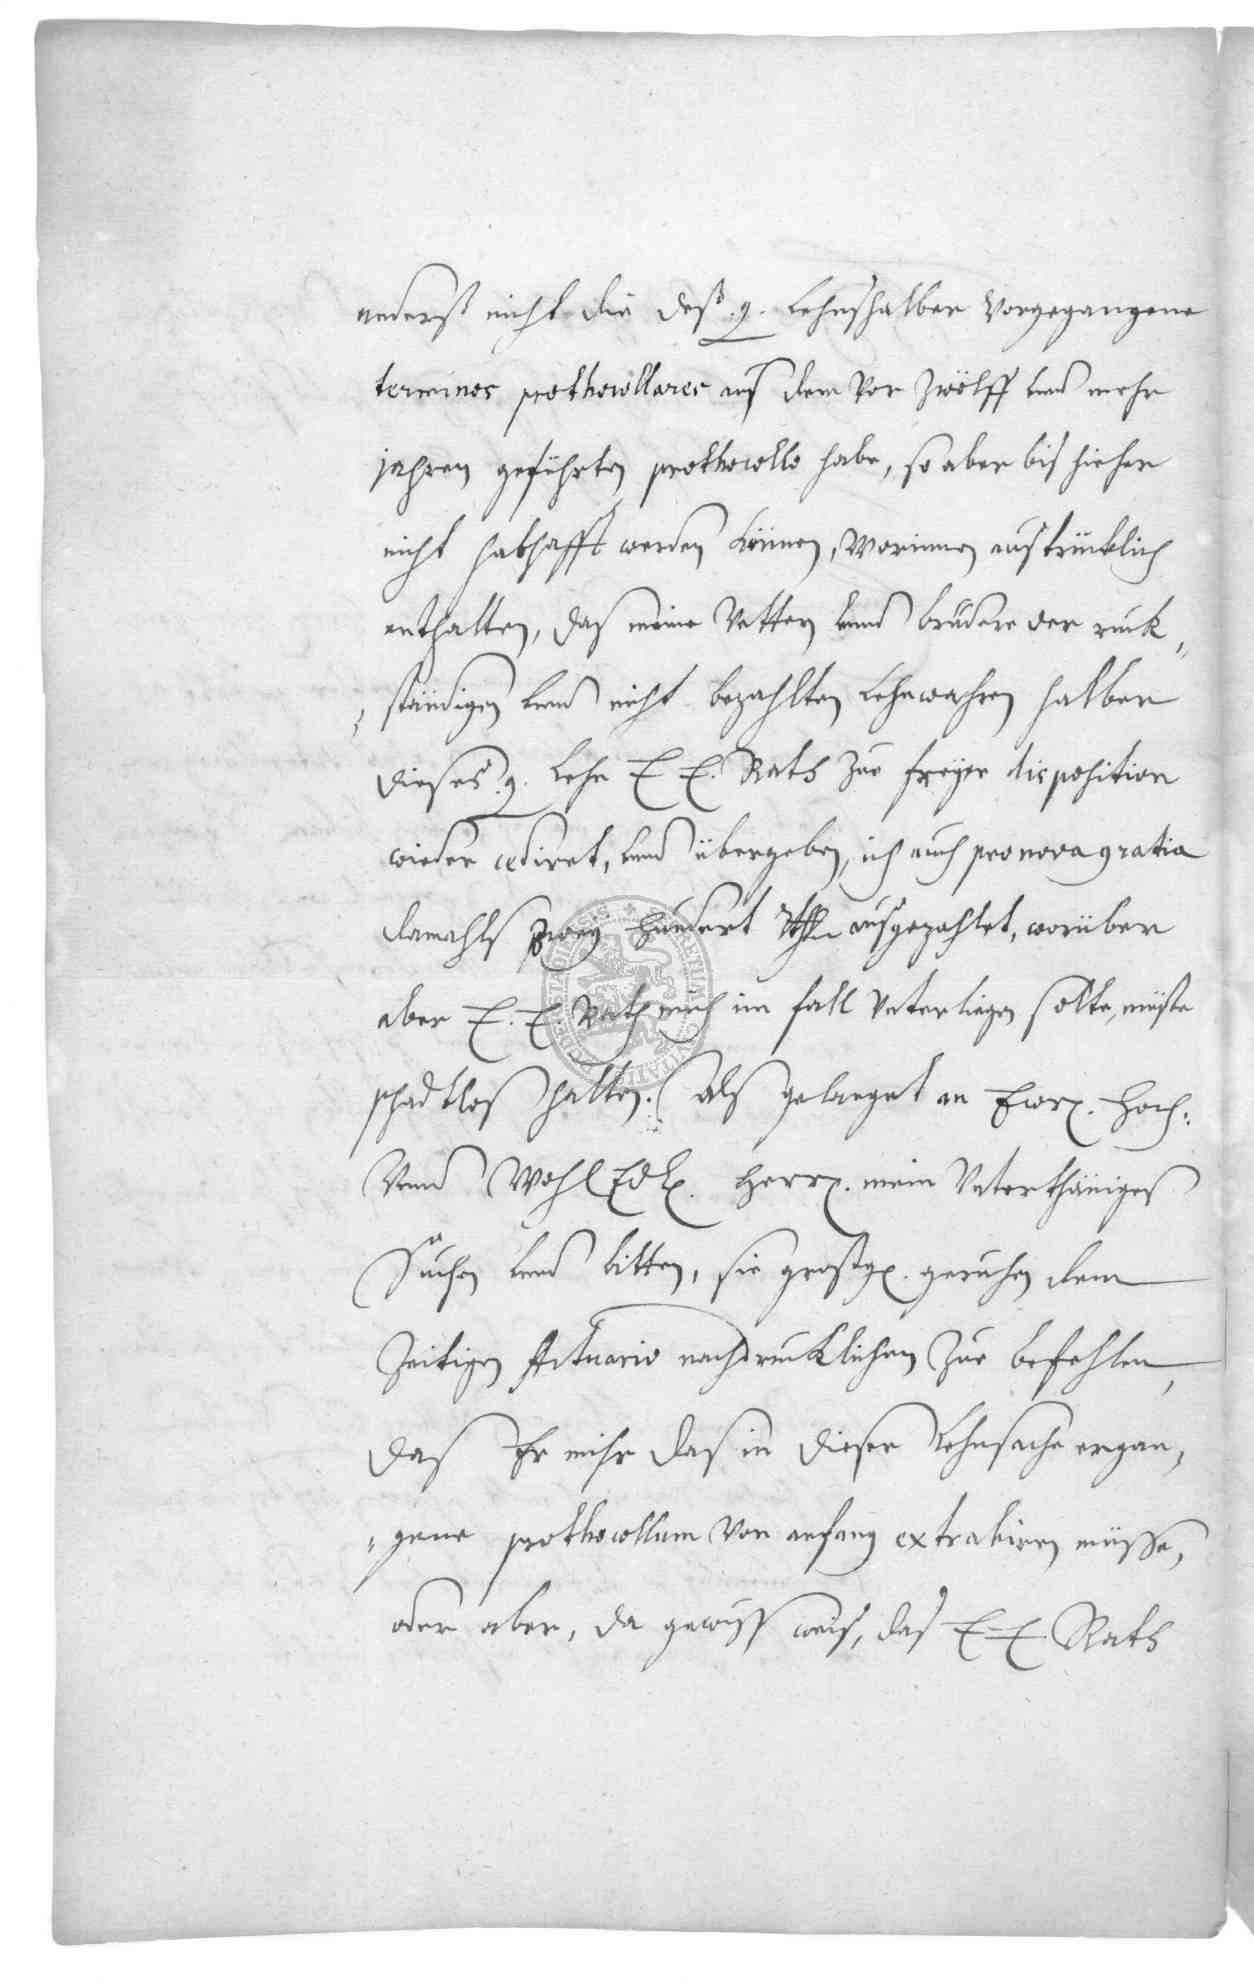 anderß nicht die deß. g. Lehnßhalber Vorgegangene
terminos prothocollares auß dem Vor Zwölff und mehr
jahren geführten prothocollo habe, so aber biß hieher
nicht habhafft werden können, Worinnen außtrücklich
enthalten, daß meine Vettern und brüdere der rück„
„ständigen und nicht bezahlten Lehnwahren halber
dieses. g. Lehn E E. Rath zue freyer disposition
wieder cediret, und übergeben, ich auch pro nova gratia
damahlß zwey hundert Rthlr außgezahlet, worüber
aber E. E. Rath mich im fall Unterliegen solte, müste
schadtloß halten. Alß gelanget an Ewr. Hoch:
Unnd Wohl Edl. Herr. mein Unterthäniges
Suchen und bitten, sie großg. geruhen dem
Zeitigen Actuario nachdrücklichen Zue befehlen,
daß Er mihr daß in dieser Lehnsache ergan„
„gene prothocollum Von anfang extrahiren müsse,
oder aber, da gewiß weiß, daß E. E. Rath